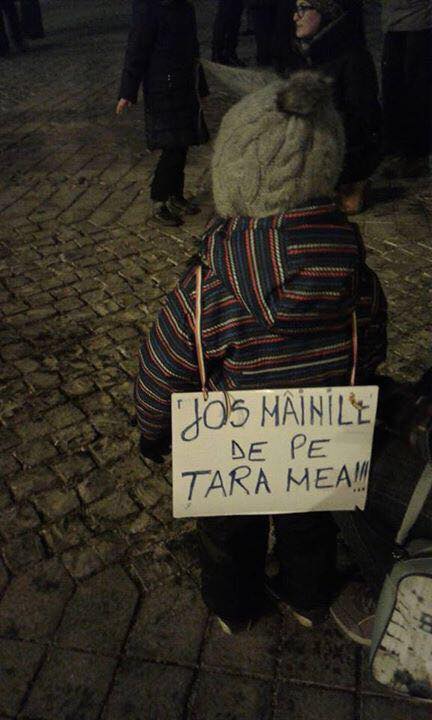 "JOS MÂINILE
DE PE
TARA MEA!!!